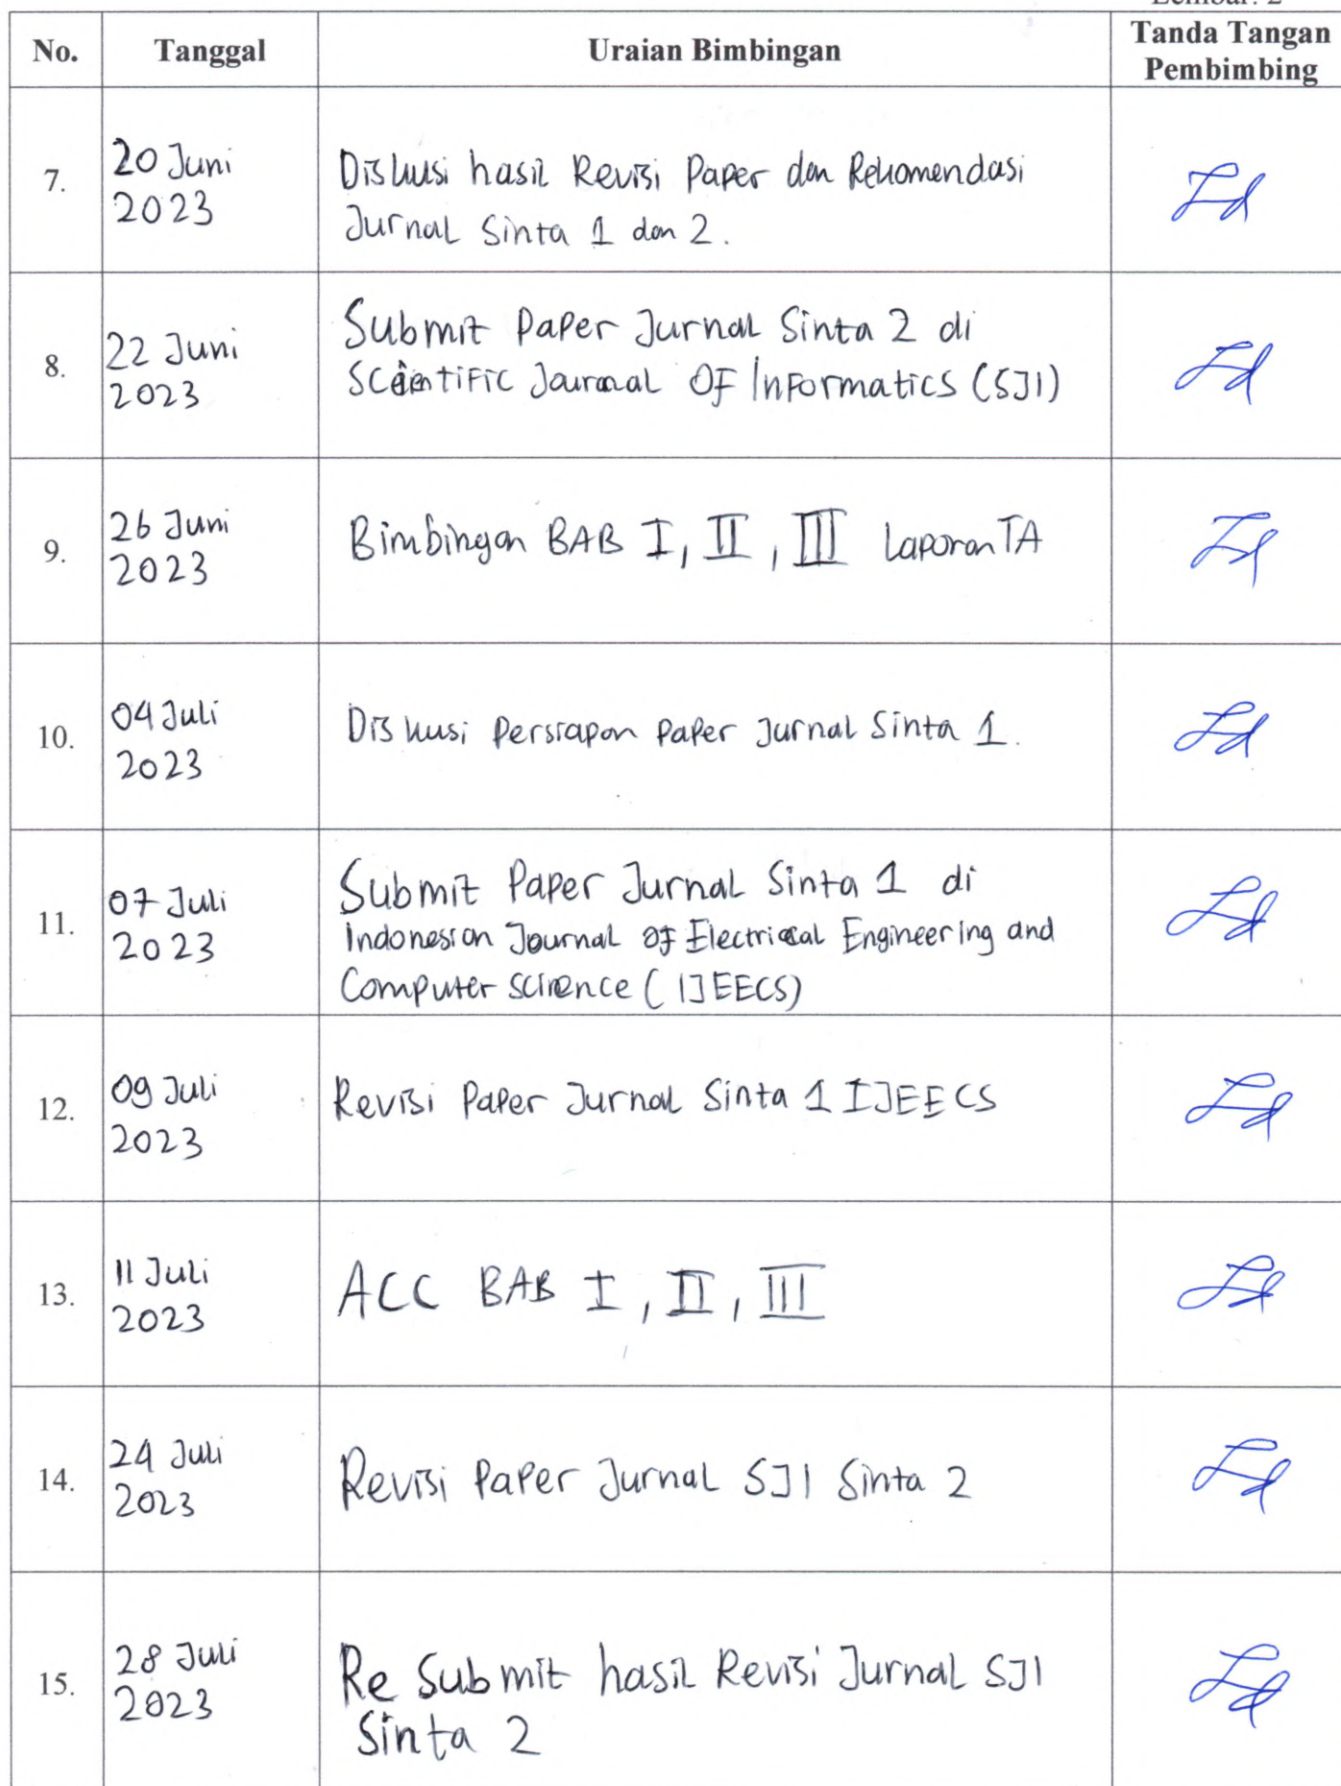 Lembar: 2
No. Tanggal Uraian Bimbingan Tanda Tangan
Pembimbing
7. 20 Juni
2023
Diskusi hasil Revisi Paper dan Rekomendasi
Jurnal Sinta 1 dan 2.
8. 22 Juni
2023
Submit Paper Jurnal Sinta 2 di
Scientific Journal OF Informatics (SJI)
9. 26 Juni
2023
Bimbingan BAB I, II, III Laporan TA
10. 04 Juli
2023
Diskusi Persiapan Paper Jurnal Sinta 1.
11. 07 Juli
2023
Submit Paper Jurnal Sinta 1 di
Indonesian Journal of Electrical Engineering and
Computer Science (IJEECS)
12. 09 Juli
2023
Revisi Paper Jurnal Sinta 1 IJEECS
13. 11 Juli
2023
ACC BAB I, II, III
14. 24 Juli
2023
Revisi Paper Jurnal SJI Sinta 2
15. 28 Juli
2023
Re Submit hasil Revisi Jurnal SJI
Sinta 2